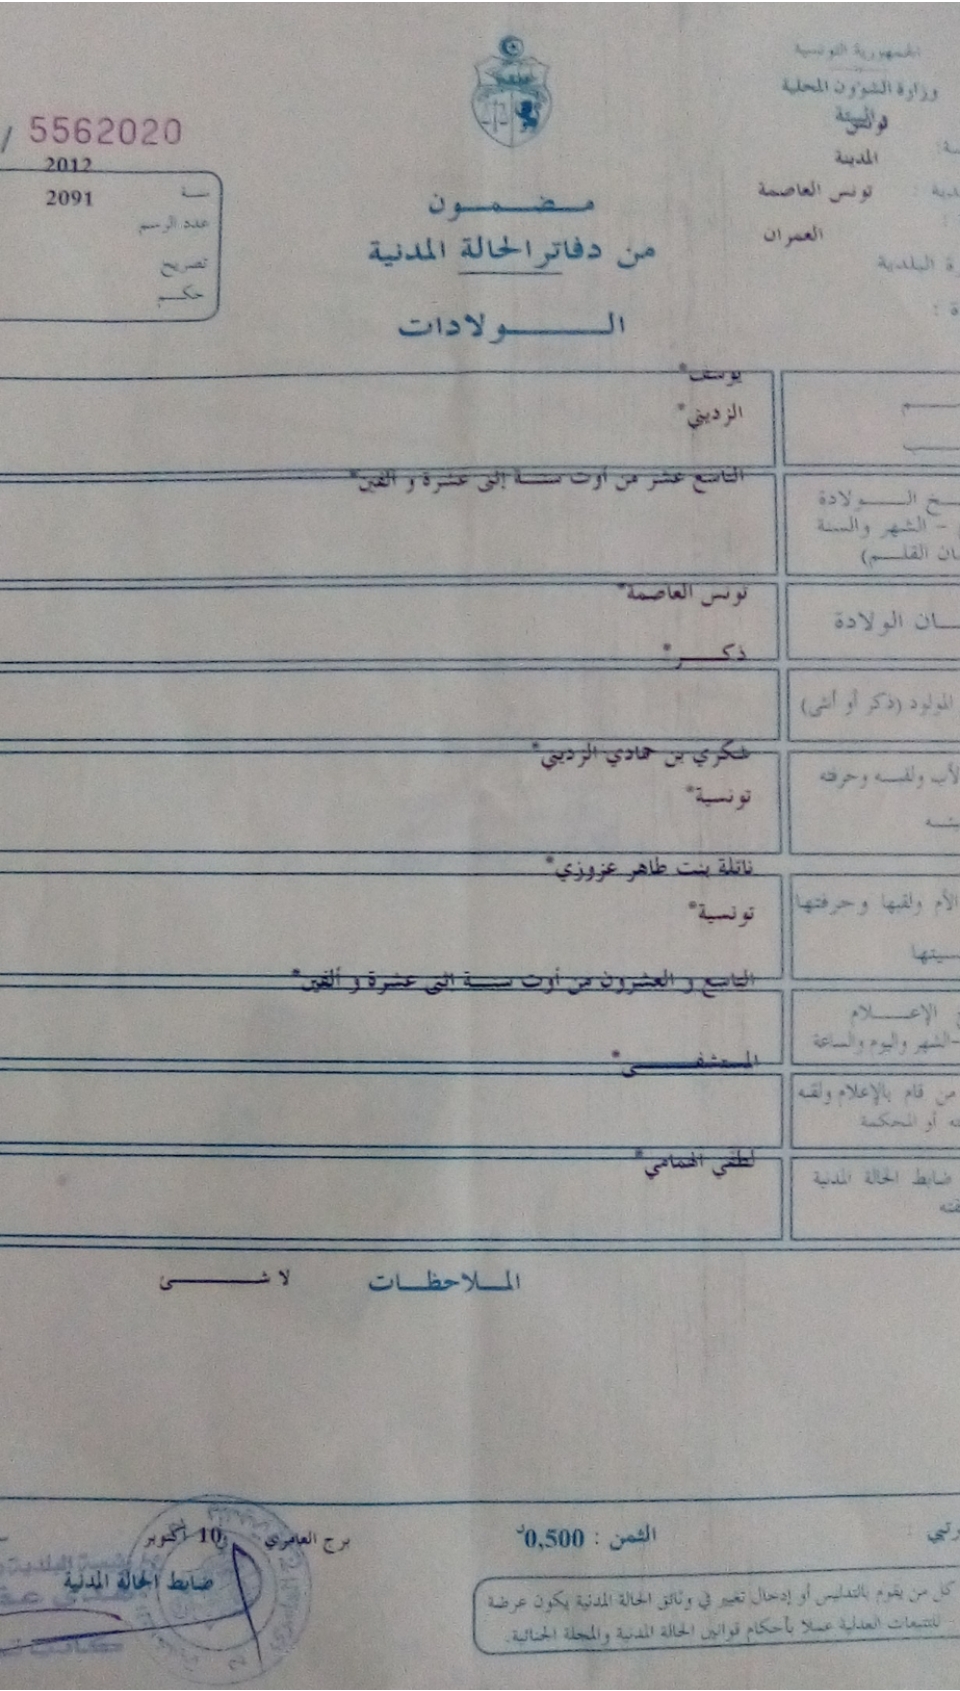 الجمهورية التونسية
وزارة الشؤون المحلية
والبيئة
تونس
المدينة
تونس العاصمة
العمران
البلدية
5562020 /
2012
سنة 2091
عدد الرسم
تصريح
حكم
مضمون
من دفاتر الحالة المدنية
الولادات
يوسف*
الزديني*
التاسع عشر من أوت سنة إثنى عشرة و ألفين*
الولادة
- الشهر والسنة
القلم)
تونس العاصمة*
الولادة
ذكر*
المولود (ذكر أو أنثى)
شكري بن حمادي الزديني*
الأب ولقبه وحرفته
تونسية*
نائلة بنت طاهر عزوزي*
الأم ولقبها وحرفتها
تونسية*
التاسع و العشرون من أوت سنة إثنى عشرة و ألفين*
الإعلام
-الشهر واليوم والساعة
المستشفى*
من قام بالإعلام ولقبه
أو المحكمة
لطفي الهمامي*
ضابط الحالة المدنية
الملاحظات لا شئ
الثمن : 0,500د
برج العامري 10 أكتوبر
ضابط الحالة المدنية
كل من يقوم بالتدليس أو إدخال تغيير في وثائق الحالة المدنية يكون عرضة
للتتبعات العدلية عملا بأحكام قوانين الحالة المدنية والمجلة الجنائية.